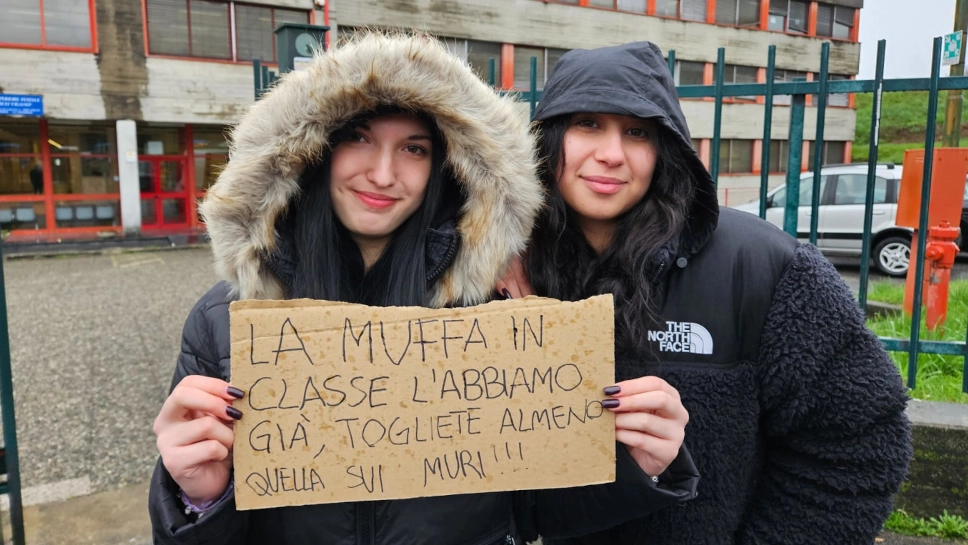 LA MUFFA IN
CLASSE L'ABBIAMO
GIÀ, TOGLIETE ALMENO
QUELLA SUI MURI!!!
THE
NORTH
FACE